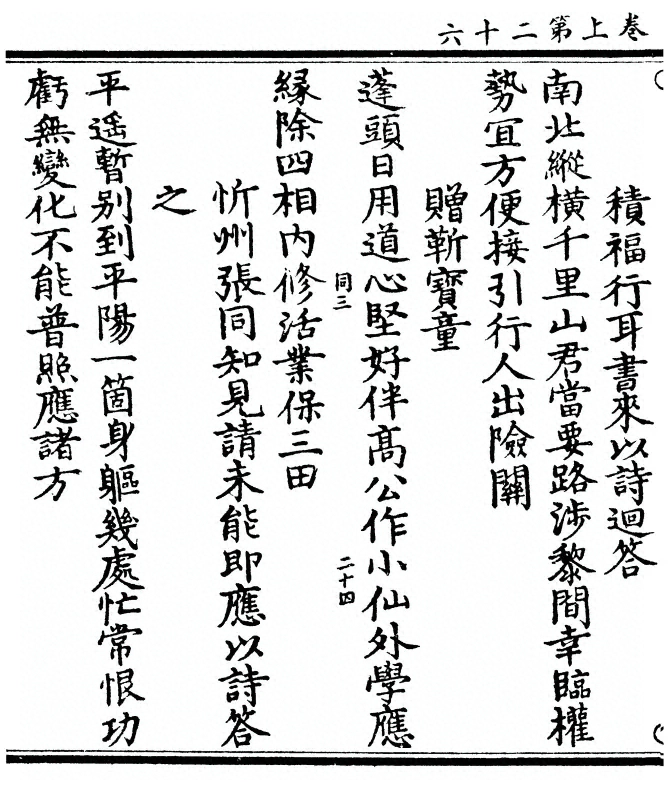 卷上第二十六
積福行耳書來以詩迴答
南北縱橫千里山君當要路涉黎間幸臨權
勢宜方便接引行人出險關
贈靳寶童
蓬頭日用道心堅好伴高公作小仙外學應
同三
二十四
縁除四相內修活業保三田
忻州張同知見請未能即應以詩答
之
平遥暫别到平陽一箇身軀幾處忙常恨功
虧無變化不能普照應諸方